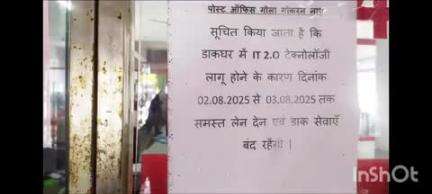 पोस्ट ऑफिस गोला गोकरन नाथ
सूचित किया जाता है कि
डाकघर में IT 2.0 टेक्नोलॉजी
लागू होने के कारण दिनांक
02.08.2025 से 03.08.2025 तक
समस्त लेन देन एवं डाक सेवाएँ
बंद रहेगी |
InShot